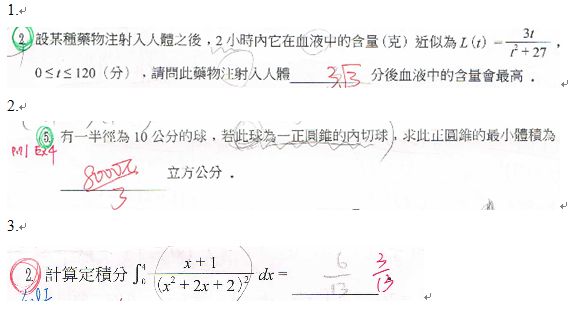 1.
2. 設某種藥物注射入人體之後，2 小時內它在血液中的含量 (克) 近似為 L(t) = 3t / (t² + 27)，
0≤t≤120 (分)，請問此藥物注射入人體 3√3 分後血液中的含量會最高．
2.
5. 有一半徑為 10 公分的球，若此球為一正圓錐的內切球，求此正圓錐的最小體積為
8000π / 3 立方公分．
3.
2. 計算定積分 ∫₀⁴ ( (x + 1) / (x² + 2x + 2)² ) dx = 6/13 3/13